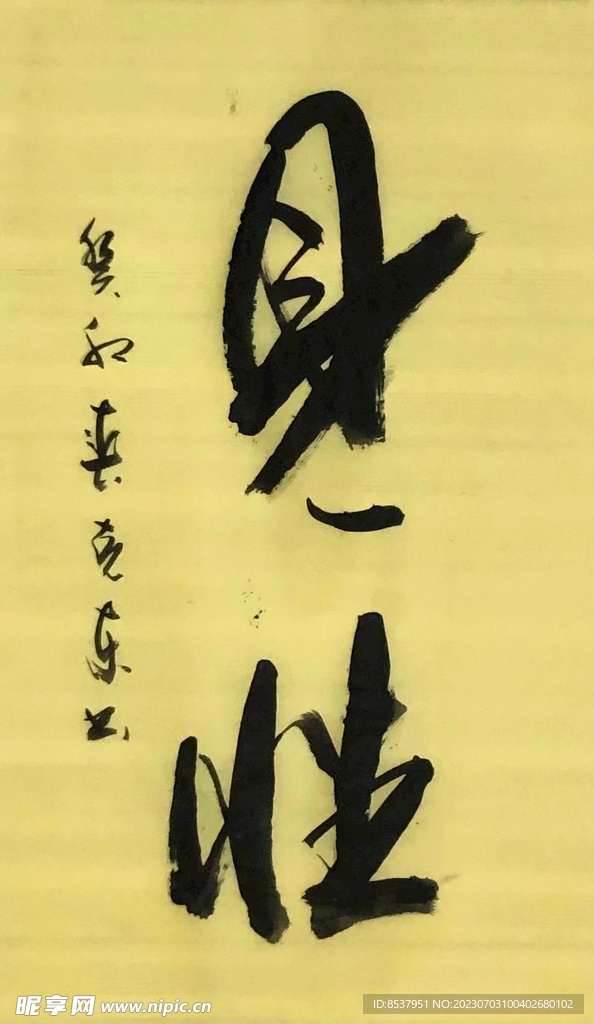 見性
癸卯克东书
昵享网 www.nipic.cn
ID:8537951 NO:20230703100402680102